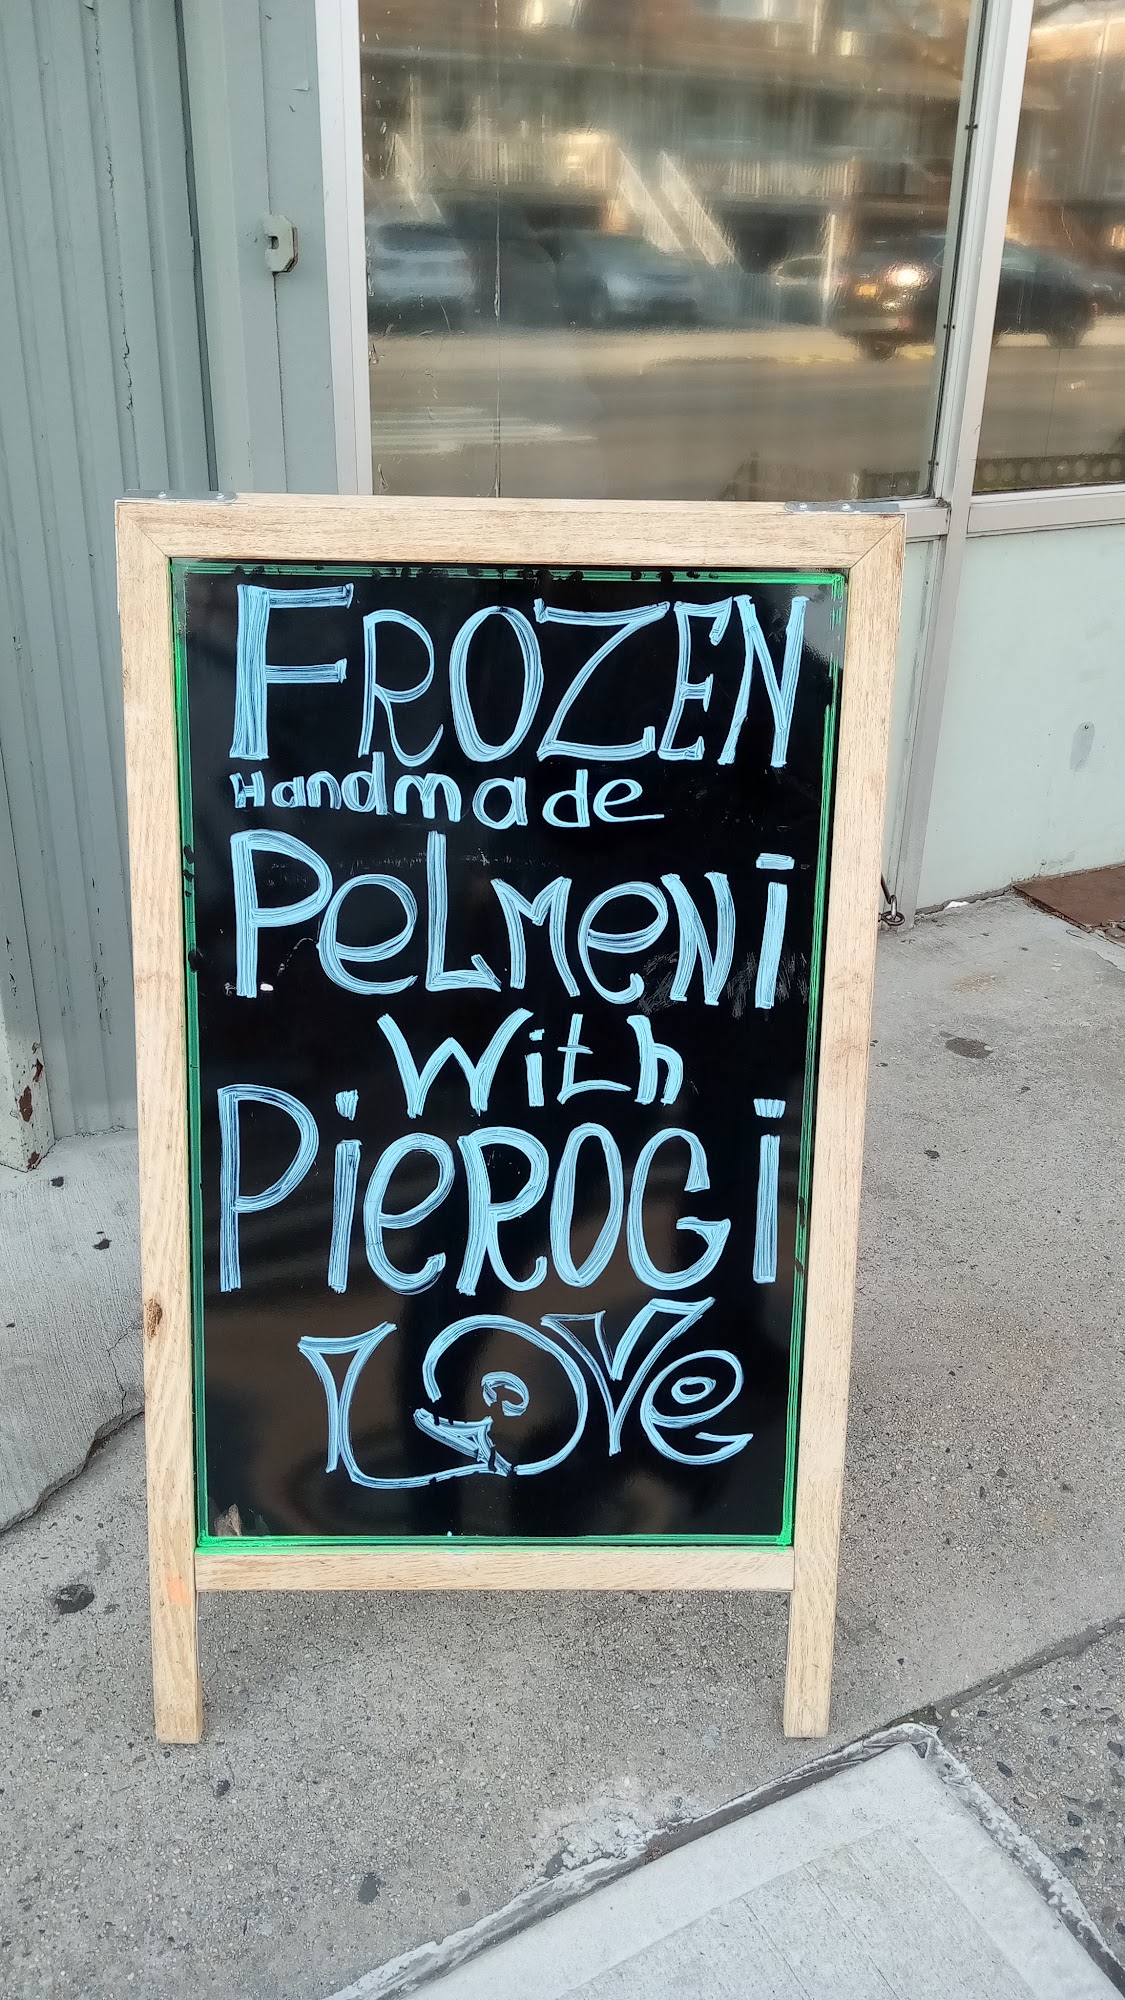 FROZEN
Handmade
PeLMeNi
With
PieROGi
LOVe